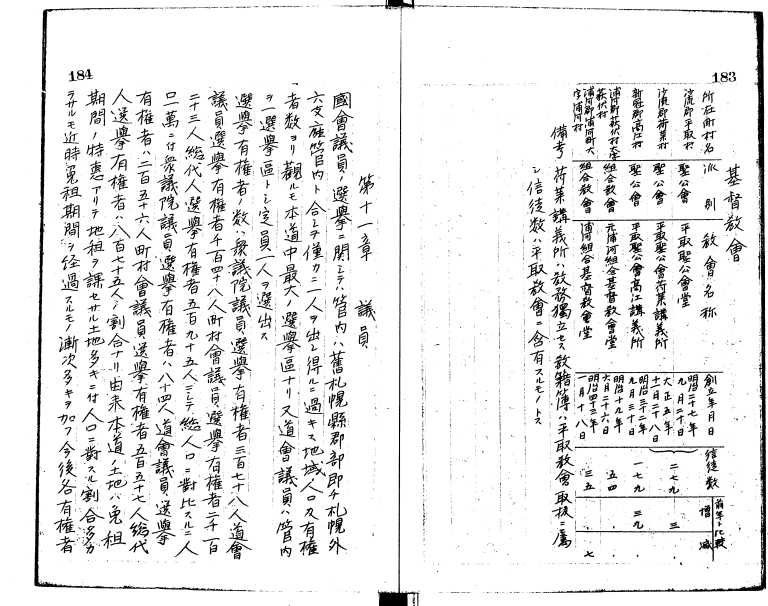 183
基督教會
所在町村名 派別 教會名称 創立年月日 信徒数 前年ト比較 増 減
沙流郡平取村 聖公會 平取聖公會堂 明治二十七年九月二十日 二七九 三
沙流郡荷菜村 聖公會 平取聖公會荷菜講義所 大正五年十一月二十八日
新冠郡高江村 聖公會 平取聖公會高江講義所 明治三十二年九月三十日 一七九 三九
浦河郡荻伏村大字荻伏村 組合教會 元浦河組合基督教會堂 明治十九年六月二十六日 五四 .
浦河郡浦河町大字浦河村 組合教會 浦河組合基督教會堂 明治四十三年一月十八日 三五 . 七
備考 荷菜講義所ハ教務獨立セス教籍簿ハ平取教會取扱ニ属
シ信徒数ハ平取教會ニ含有スルモノトス
184
第十一章 議員
國會議員ノ選挙ニ関シテハ管内ハ舊札幌縣郡部即チ札幌外
六支庁管内ト合シテ僅カニ一人ヲ出シ得ルニ過キス地域人口及有権
者数ヨリ觀ルモ本道中最大ノ選挙區ナリ又道會議員ハ管内
ヲ一選挙區トシ定員一人ヲ選出ス
選挙有権者ノ数ハ衆議院議員選挙有権者三百七十八人道會
議員選挙有権者千百四十八人町村會議員選挙有権者二千一百
二十三人総代人選挙有権者五百九十五人ニシテ総人口ニ對比スルニ人
口一萬ニ付衆議院議員選挙有権者ハ八十四人道會議員選挙
有権者ハ二百五十六人町村會議員選挙有権者五百五十七人総代
人選挙有権者ハ八百七十五人ノ割合ナリ由来本道ノ土地ハ免租
期間ノ特恵アリテ地租ヲ課セサル土地多キニ付人口ニ對スル割合多カ
ラサルモ近時免租期間ヲ経過スルモノ漸次多キヲ加フ今後各有権者